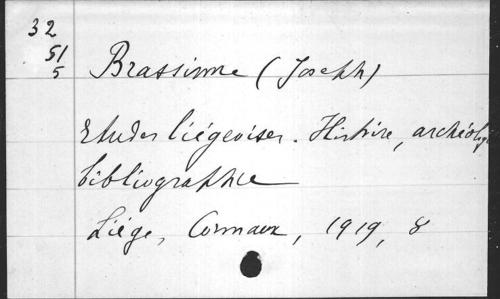 32
51
5
Brassinne (Joseph)
Etudes liégeoises. Histoire, archéologie
bibliographie
Liége, Cormaux, 1919, 8